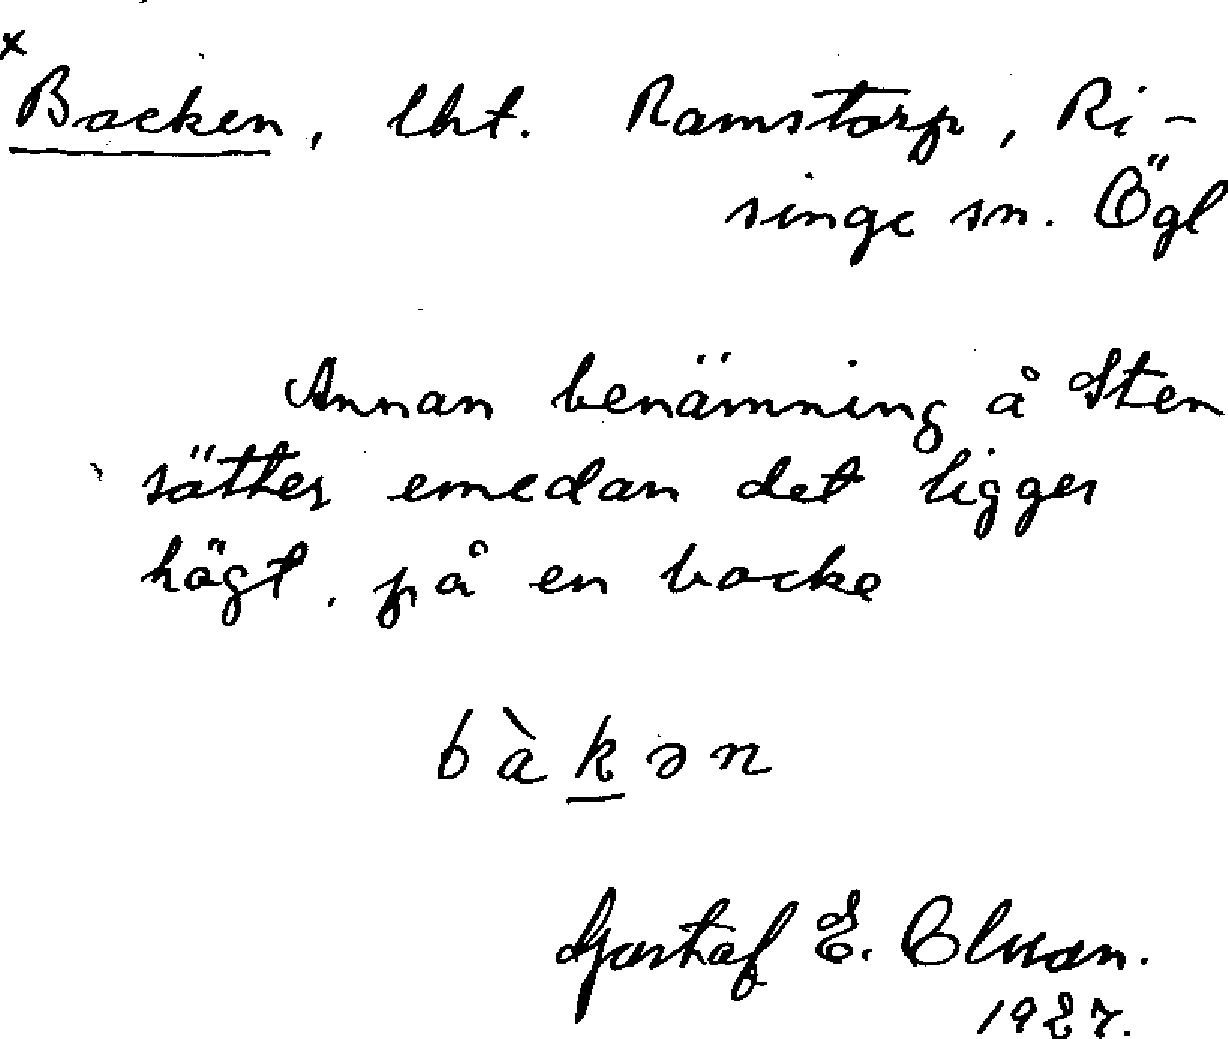 x
Backen, lht. Ramstorp, Ri-
singe sn. Ögl
Annan benämning å Sten
sätter emedan det ligger
högt. på en backe
bàkən
Gustaf E.
1927.